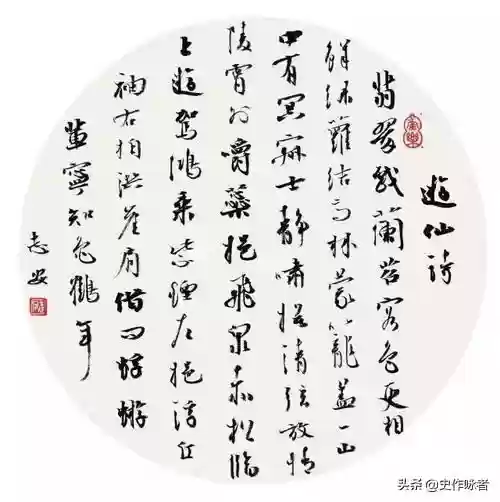 遊仙詩
翡翠戲蘭苕容色更相
鮮綠蘿結高林蒙籠蓋一山
中有冥寂士靜嘯撫清弦放情
陵霄外嚼蘂挹飛泉赤松臨
上遊駕鴻乘紫煙左挹浮丘
袖右拍洪崖肩借問蜉蝣
輩寧知龜鶴年
志安
头条 @史作咏者